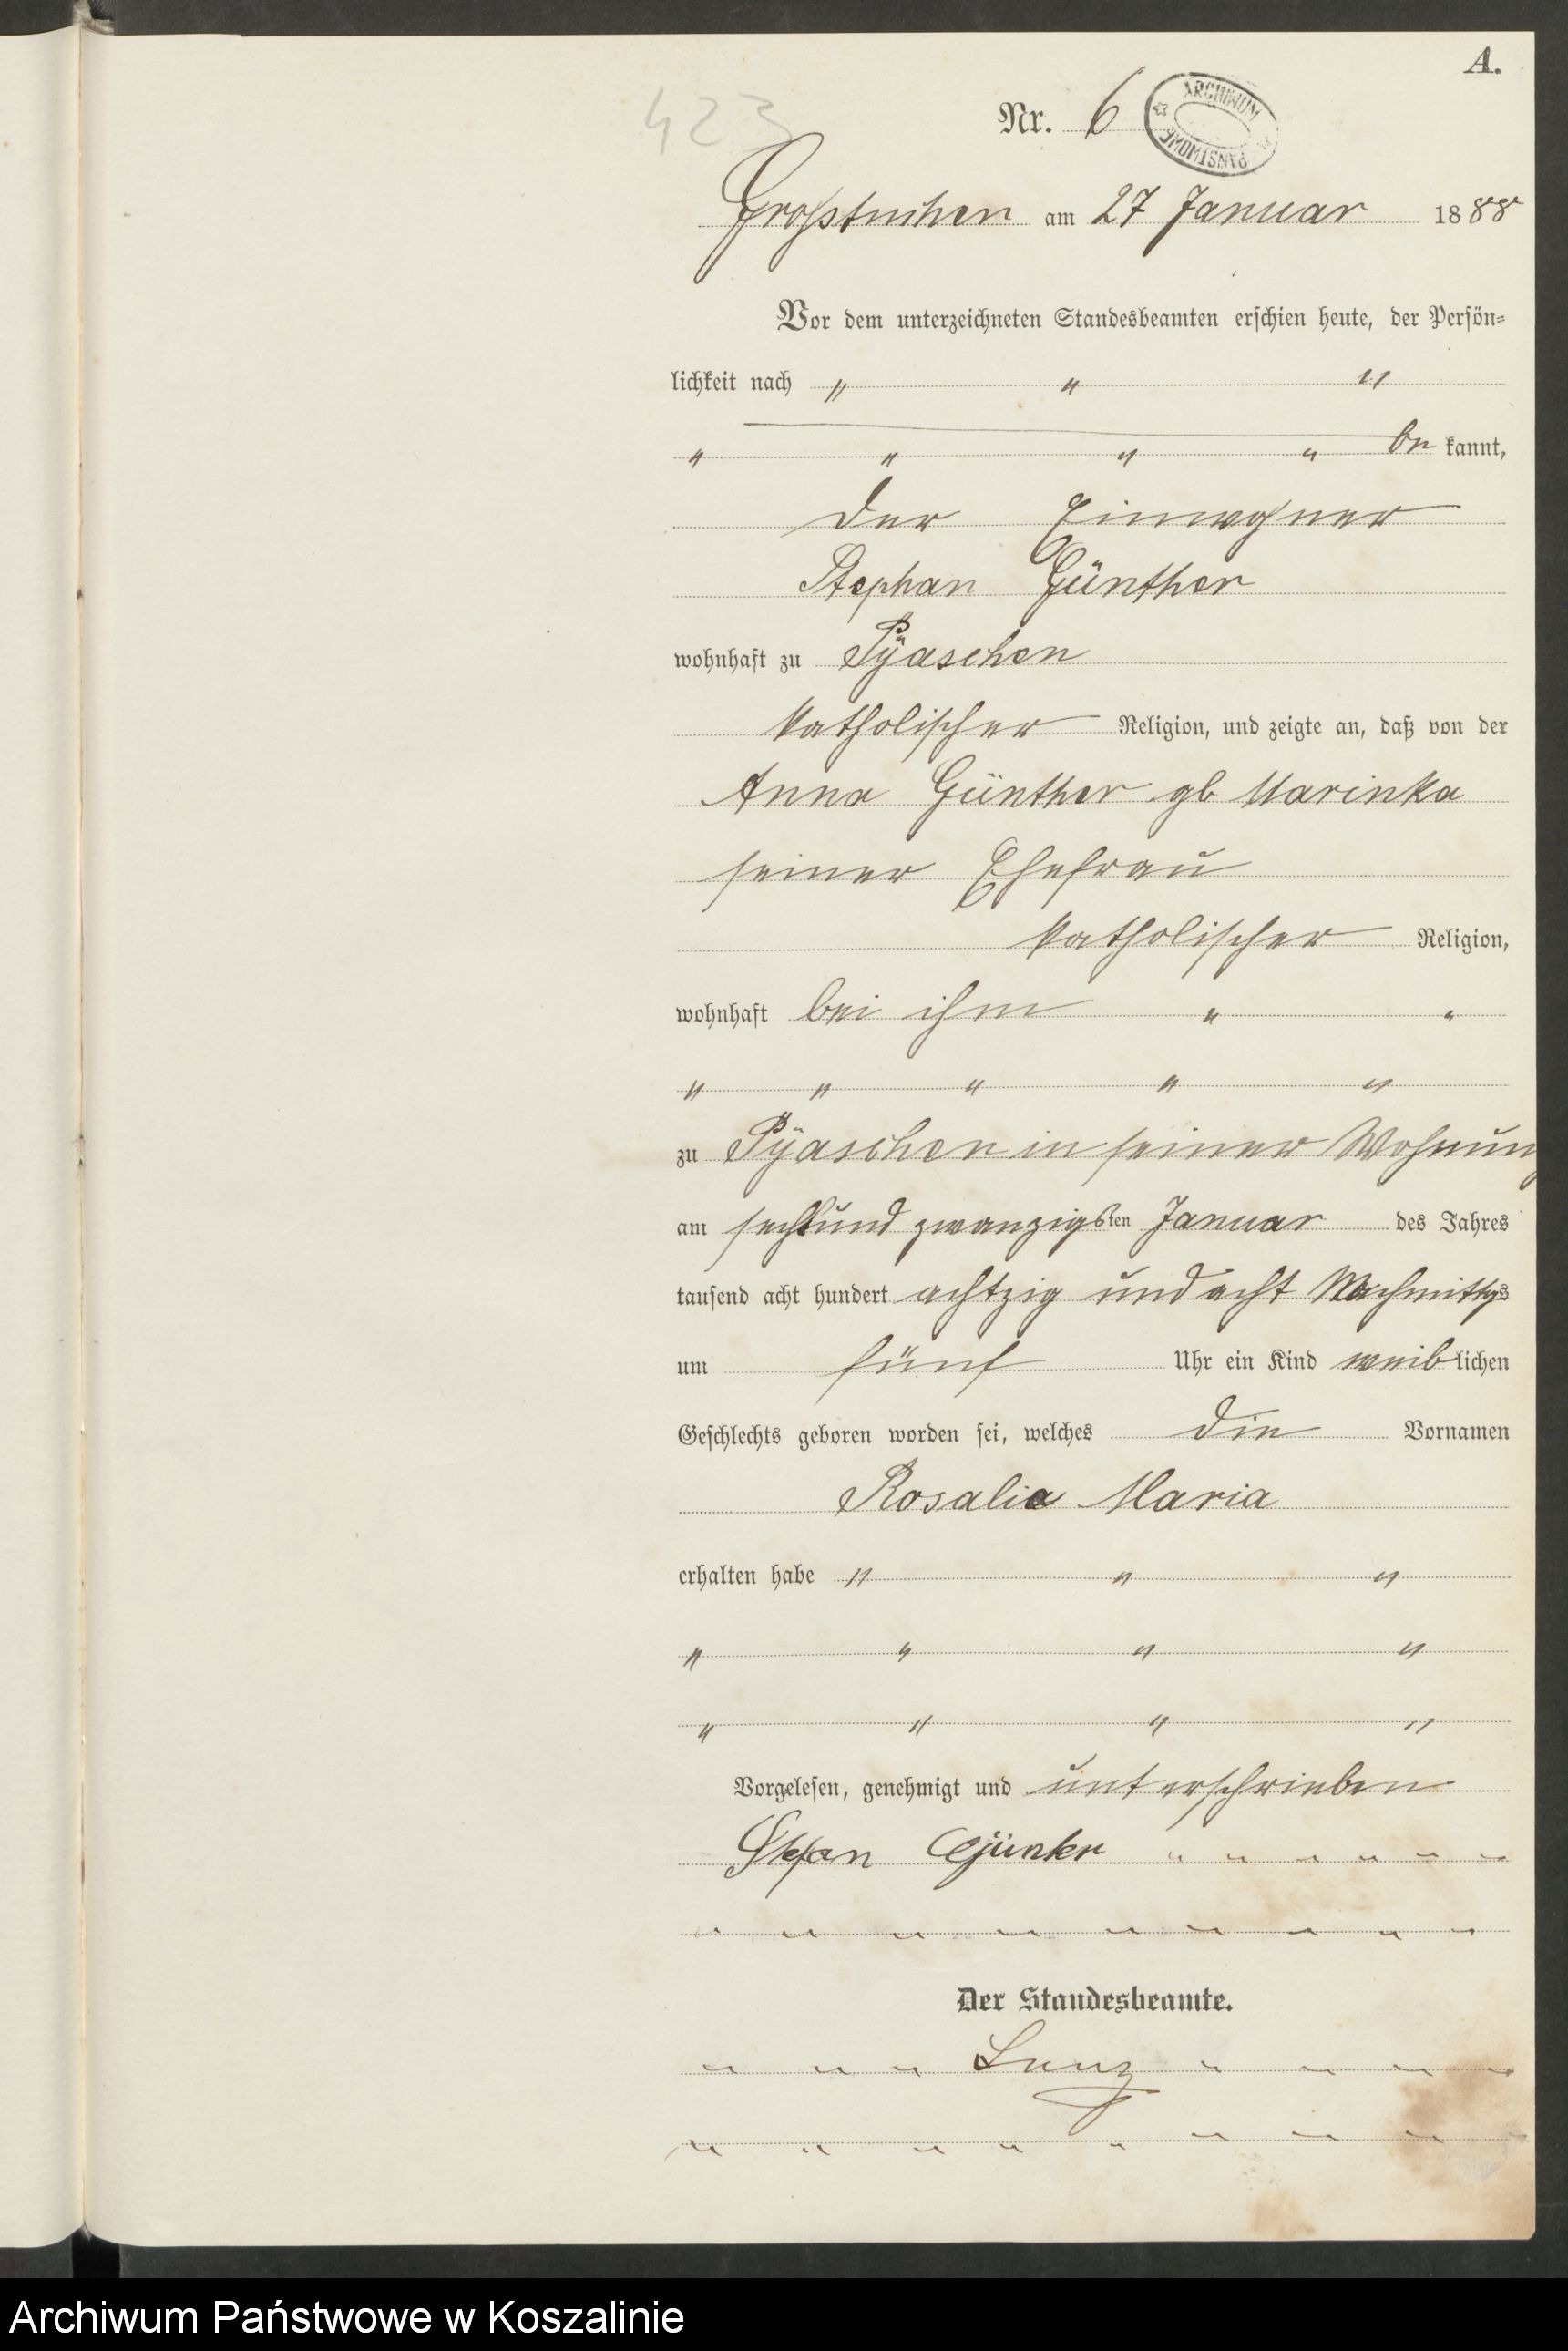 A.
423
Nr. 6
ARCHIWUM PAŃSTWOWE
Großtuchen am 27 Januar 1888
Vor dem unterzeichneten Standesbeamten erschien heute, der Persön=
lichkeit nach " " "
" " " " be kannt,
der Einwohner
Stephan Günther
wohnhaft zu Pÿaschen
katholischer Religion, und zeigte an, daß von der
Anna Günther gb Marinka
seiner Ehefrau
katholischer Religion,
wohnhaft bei ihm " "
" " " " "
zu Pÿaschen in seiner Wohnung
am sechsund zwanzigsten Januar des Jahres
tausend acht hundert achtzig und acht Nachmittgs
um fünf Uhr ein Kind weiblichen
Geschlechts geboren worden sei, welches die Vornamen
Rosalia Maria
erhalten habe " " "
" " " "
" " " "
Vorgelesen, genehmigt und unterschrieben
Stefan " " " " " "
" " " " " " " " "
Der Standesbeamte.
" " " " " " "
" " " " " " " "
Archiwum Państwowe w Koszalinie